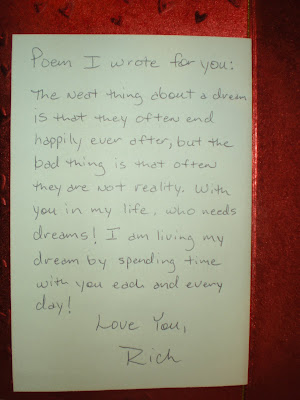 Poem I wrote for you:
The neat thing about a dream
is that they often end
happily ever after, but the
bad thing is that often
they are not reality. With
you in my life, who needs
dreams! I am living my
dream by spending time
with you each and every
day!
Love You,
Rich